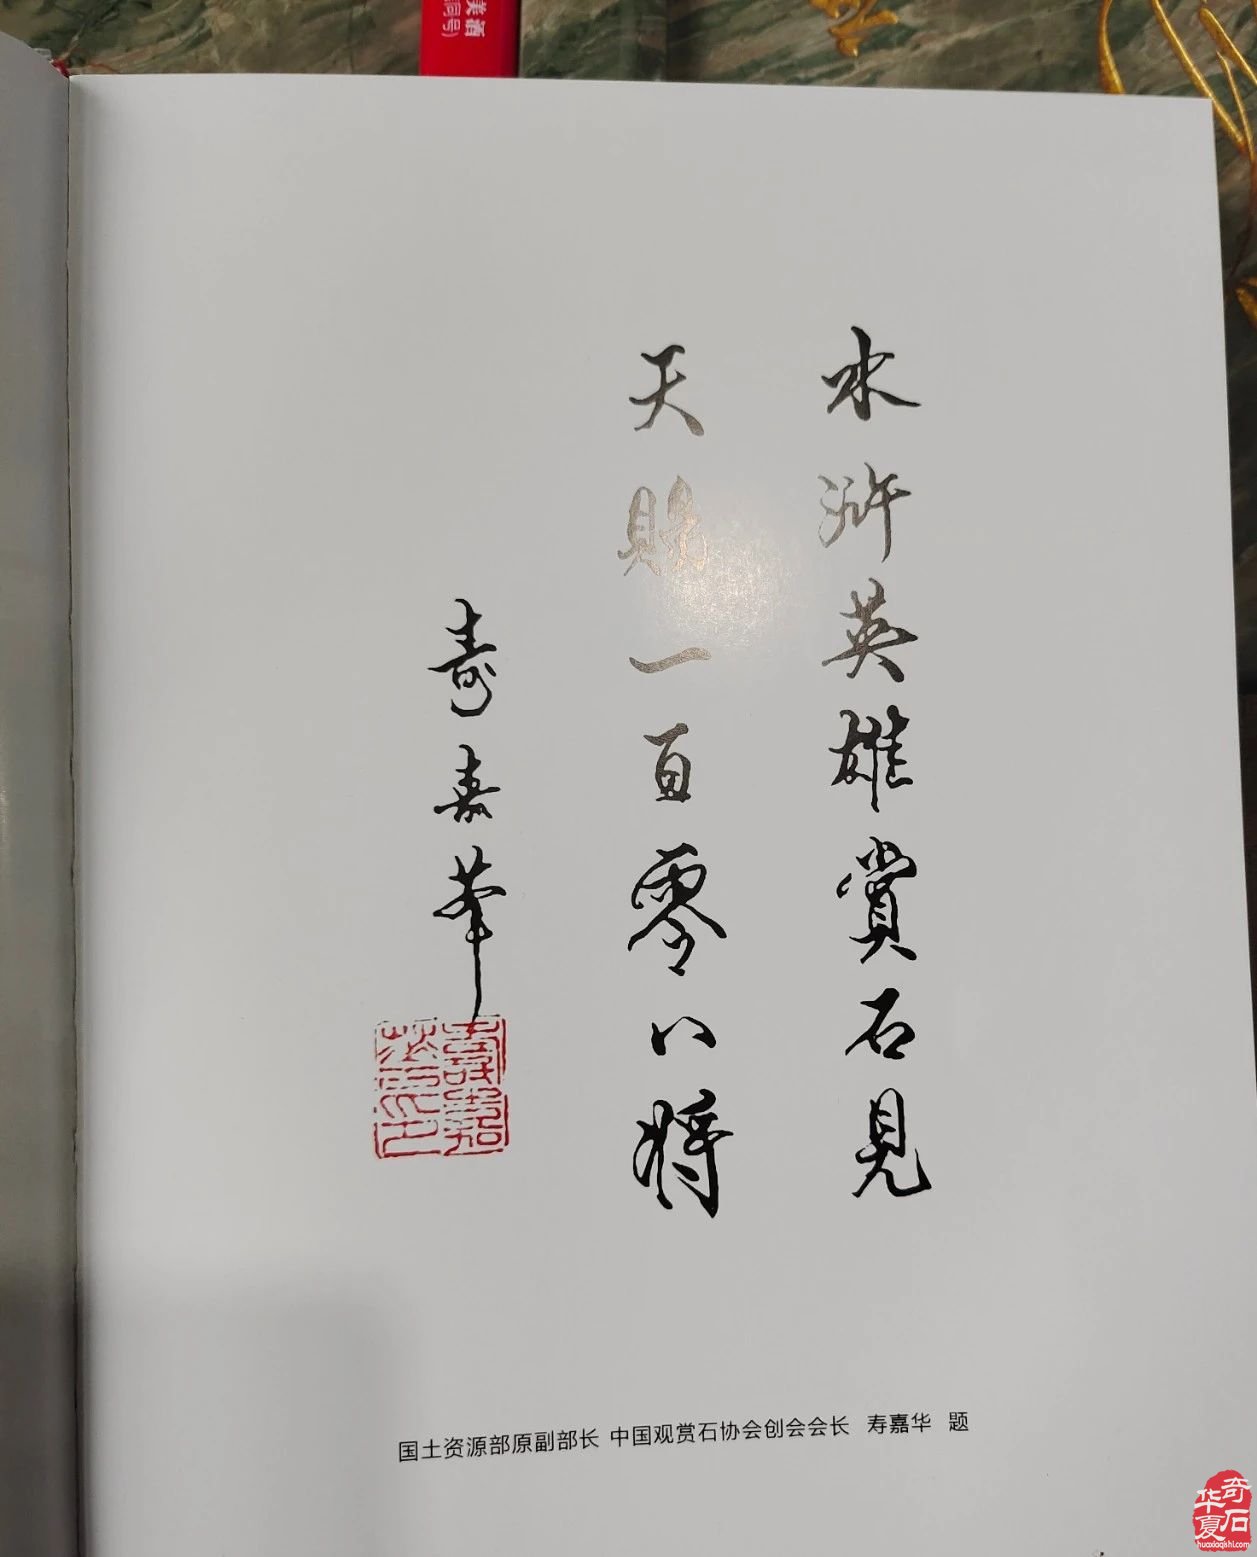 美酒
洞号)
水浒英雄赏石見
天賜一百零八将
寿嘉华
国土资源部原副部长 中国观赏石协会创会会长 寿嘉华 题
华夏奇石
huaxiaqishi.com